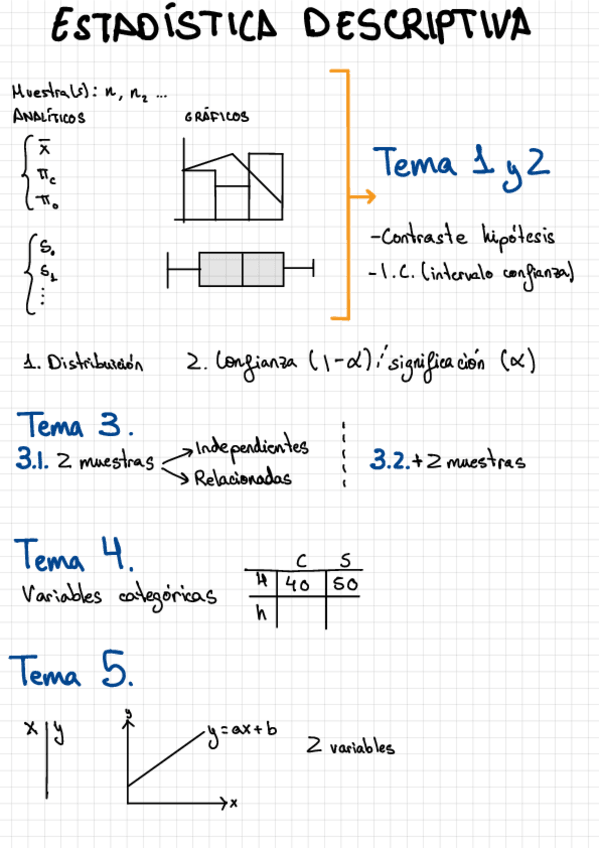 ESTADÍSTICA DESCRIPTIVA
Muestra(s): n, n₂ ...
ANALÍTICOS
GRÁFICOS
x̄
π_c
π₀
S₀
S₁
⋮
Tema 1 y 2
-Contraste hipótesis
-I.C. (intervalo confianza)
1. Distribución
2. Confianza (1-α) / significación (α)
Tema 3.
3.1. 2 muestras
Independientes
Relacionadas
3.2. +2 muestras
Tema 4.
Variables categóricas
C S
H 40 50
h
Tema 5.
x y
y
y=ax+b
x
2 variables